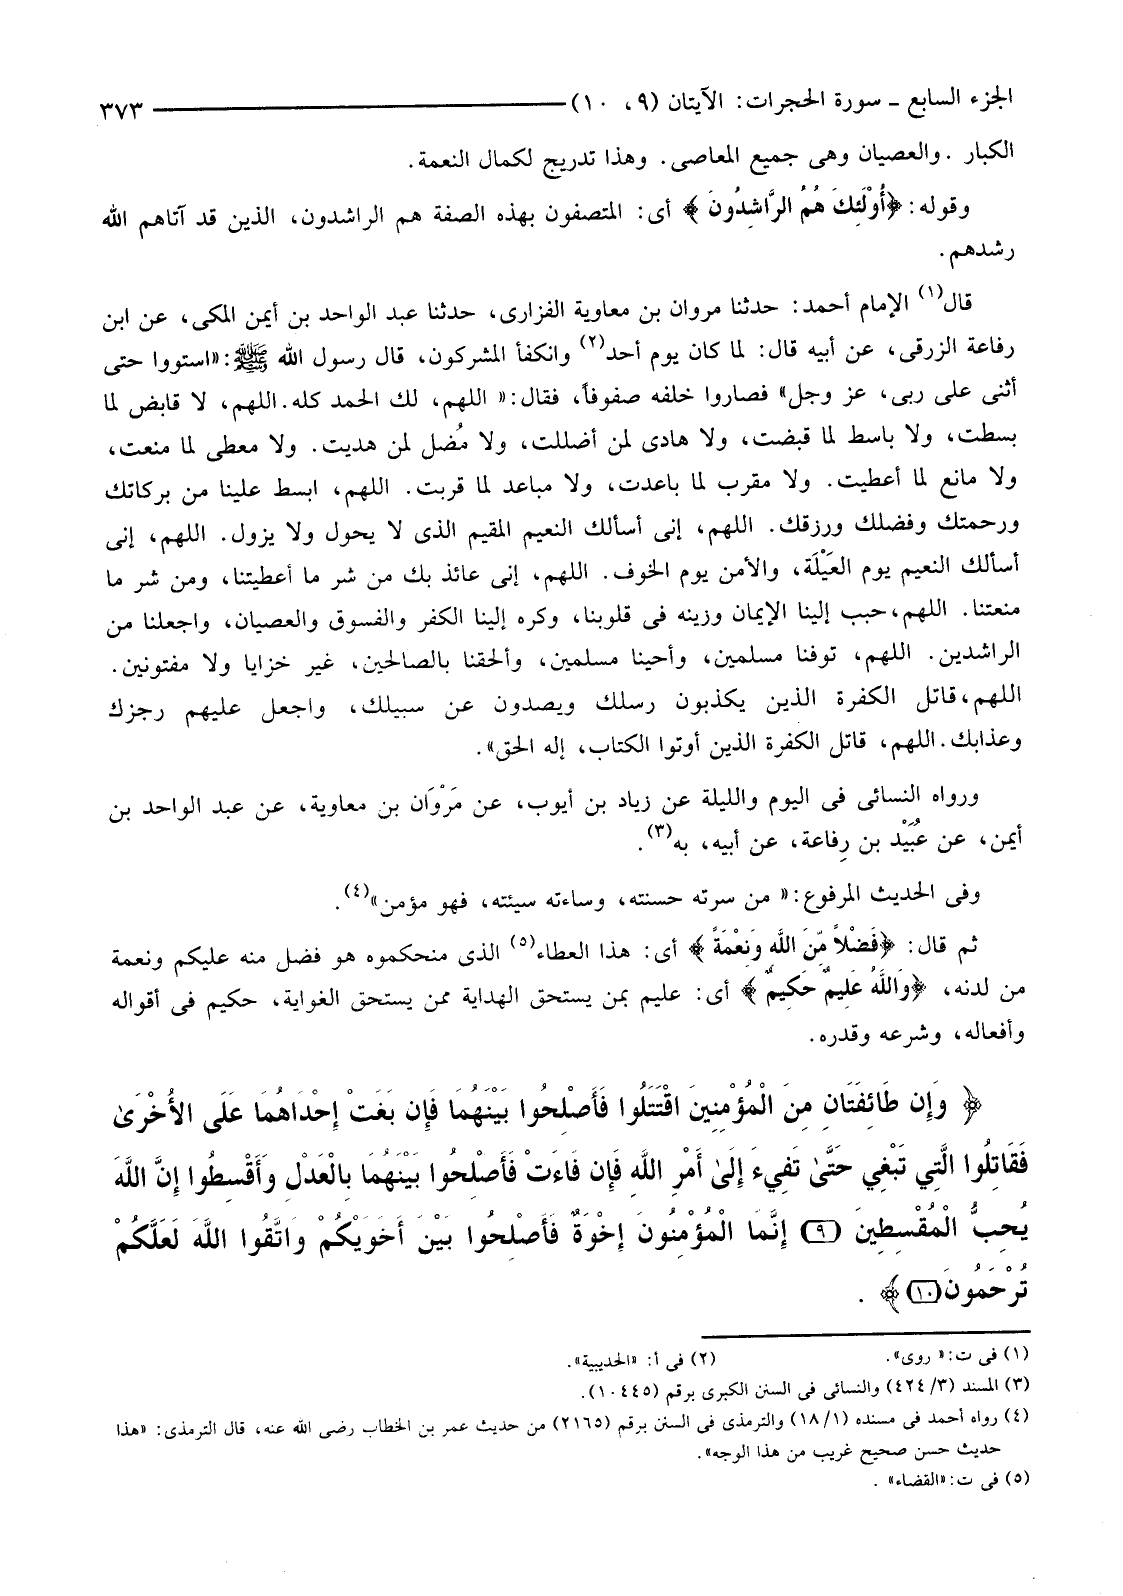 الجزء السابع ـ سورة الحجرات: الآيتان (٩، ١٠) ٣٧٣
الكبار .والعصيان وهى جميع المعاصى. وهذا تدريج لكمال النعمة.
وقوله: ﴿أُوْلَئِكَ هُمُ الرَّاشِدُونَ ﴾ أى: المتصفون بهذه الصفة هم الراشدون، الذين قد آتاهم الله
رشدهم.
قال(١) الإمام أحمد: حدثنا مروان بن معاوية الفزارى، حدثنا عبد الواحد بن أيمن المكى، عن ابن
رفاعة الزرقى، عن أبيه قال: لما كان يوم أحد(٢) وانكفأ المشركون، قال رسول الله ﷺ:«استووا حتى
أثنى على ربى، عز وجل» فصاروا خلفه صفوفاً، فقال:« اللهم، لك الحمد كله.اللهم، لا قابض لما
بسطت، ولا باسط لما قبضت، ولا هادى لمن أضللت، ولا مُضل لمن هديت. ولا معطى لما منعت،
ولا مانع لما أعطيت. ولا مقرب لما باعدت، ولا مباعد لما قربت. اللهم، ابسط علينا من بركاتك
ورحمتك وفضلك ورزقك. اللهم، إنى أسألك النعيم المقيم الذى لا يحول ولا يزول. اللهم، إنى
أسألك النعيم يوم العَيْلَة، والأمن يوم الخوف. اللهم، إنى عائذ بك من شر ما أعطيتنا، ومن شر ما
منعتنا. اللهم،حبب إلينا الإيمان وزينه فى قلوبنا، وكره إلينا الكفر والفسوق والعصيان، واجعلنا من
الراشدين. اللهم، توفنا مسلمين، وأحينا مسلمين، وألحقنا بالصالحين، غير خزايا ولا مفتونين.
اللهم،قاتل الكفرة الذين يكذبون رسلك ويصدون عن سبيلك، واجعل عليهم رجزك
وعذابك.اللهم، قاتل الكفرة الذين أوتوا الكتاب، إله الحق».
ورواه النسائى فى اليوم والليلة عن زياد بن أيوب، عن مَرْوَان بن معاوية، عن عبد الواحد بن
أيمن، عن عُبَيْد بن رِفاعة، عن أبيه، به(٣).
وفى الحديث المرفوع:« من سرته حسنته، وساءته سيئته، فهو مؤمن»(٤).
ثم قال: ﴿فَضْلاً مِّنَ اللَّهِ وَنِعْمَةً ﴾ أى: هذا العطاء(٥) الذى منحكموه هو فضل منه عليكم ونعمة
من لدنه، ﴿وَاللَّهُ عَلِيمٌ حَكِيمٌ ﴾ أى: عليم بمن يستحق الهداية ممن يستحق الغواية، حكيم فى أقواله
وأفعاله، وشرعه وقدره.
﴿ وَإِن طَائِفَتَانِ مِنَ الْمُؤْمِنِينَ اقْتَتَلُوا فَأَصْلِحُوا بَيْنَهُمَا فَإِن بَغَتْ إِحْدَاهُمَا عَلَى الأُخْرَىٰ
فَقَاتِلُوا الَّتِي تَبْغِي حَتَّىٰ تَفِيءَ إِلَىٰ أَمْرِ اللَّهِ فَإِن فَاءَتْ فَأَصْلِحُوا بَيْنَهُمَا بِالْعَدْلِ وَأَقْسِطُوا إِنَّ اللَّهَ
يُحِبُّ الْمُقْسِطِينَ (٩) إِنَّمَا الْمُؤْمِنُونَ إِخْوَةٌ فَأَصْلِحُوا بَيْنَ أَخَوَيْكُمْ وَاتَّقُوا اللَّهَ لَعَلَّكُمْ
تُرْحَمُونَ (١٠)﴾ .
(١) فى ت:« روى». (٢) فى أ: «الحديبية».
(٣) المسند (٤٢٤/٣) والنسائى فى السنن الكبرى برقم (١٠٤٤٥).
(٤) رواه أحمد فى مسنده (١٨/١) والترمذى فى السنن برقم (٢١٦٥) من حديث عمر بن الخطاب رضى الله عنه، قال الترمذى: «هذا
حديث حسن صحيح غريب من هذا الوجه».
(٥) فى ت:«القضاء» .